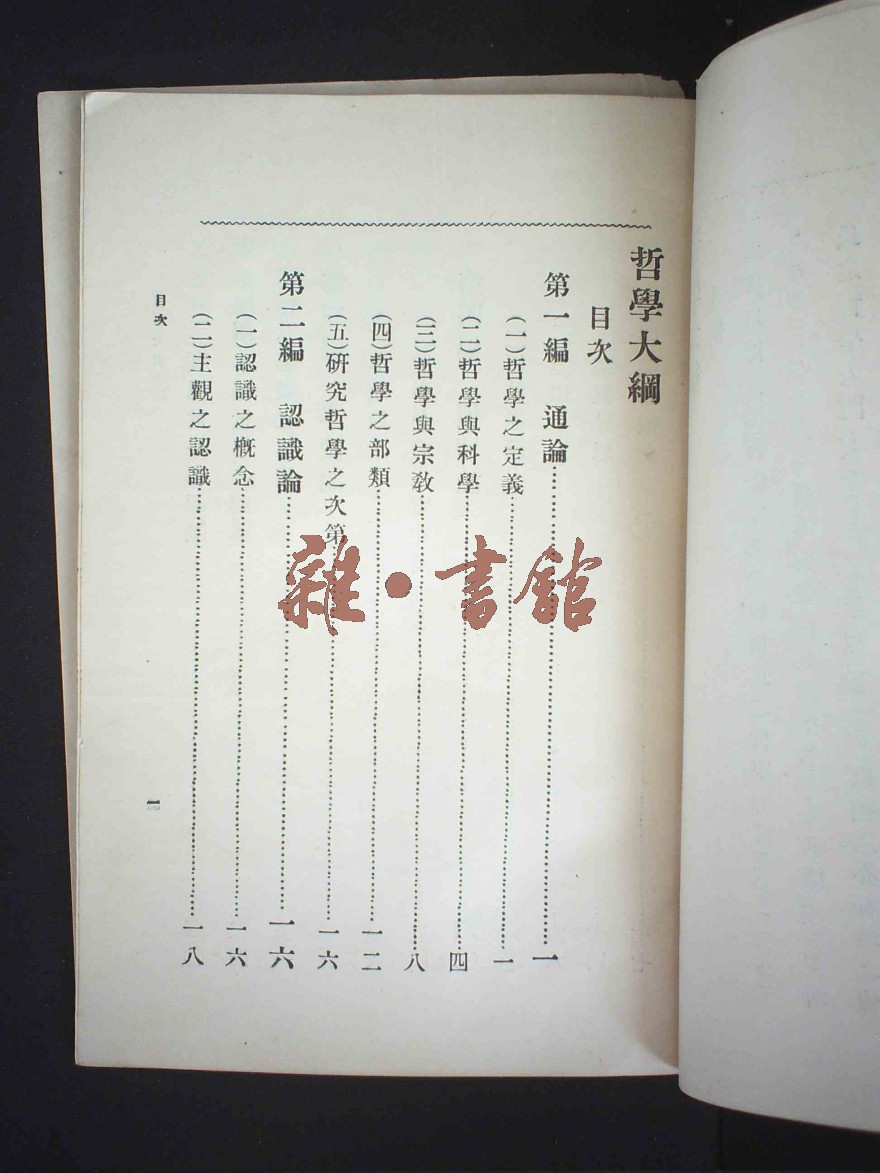 哲學大綱
目次
第一編　通論……一
(一)哲學之定義……一
(二)哲學與科學……四
(三)哲學與宗教……八
(四)哲學之部類……一二
(五)研究哲學之次第……一六
第二編　認識論……一六
(一)認識之概念……一六
(二)主觀之認識……一八
目次
一
雜·書館